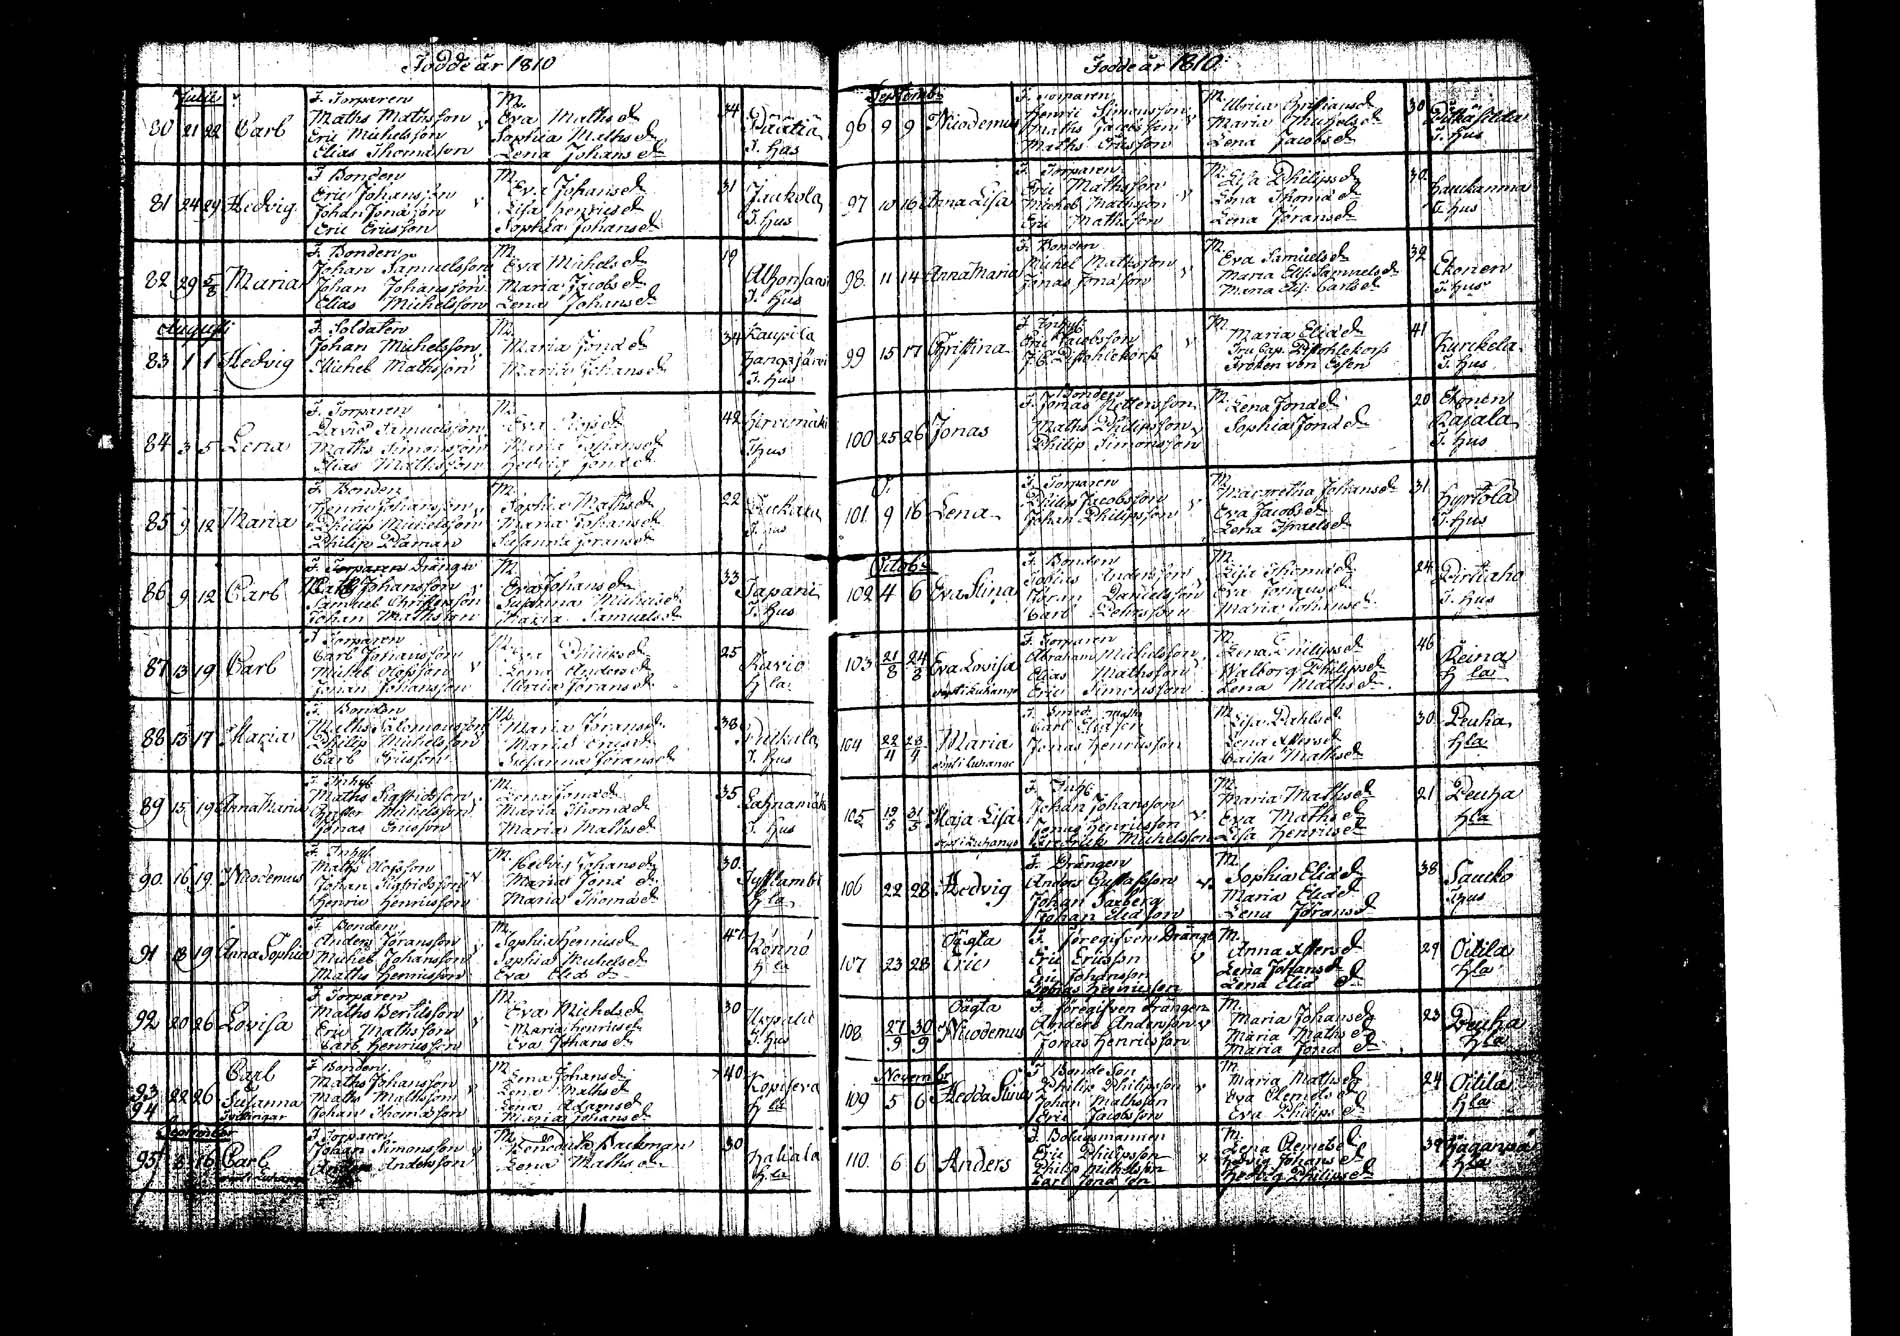 Födde år 1810
Julii
80 21 22 Carl
F. Torparen
Maths Mathsson
Eric Michelsson
Elias Thomasson
M.
Eva Mathsd
Sophia Mathsd
Lena Johansd
34
Päätiä
J. Hus
81 24 29 Hedvig
F Bonden
Eric Johansson
Johan Jonasson
Eric Ericsson
M.
Eva Johansd
Lisa Henricsd
Sophia Johansd
31
Jaukola
J. Hus
82 29 5/8 Maria
F. Bonden
Johan Samuelsson
Johan Johansson
Elias Michelsson
M.
Eva Michelsd
Maria Jacobsd
Lena Johansd
19
J. Hus
Augusti
83 1 1 Hedvig
F. Soldaten
Johan Michelsson
Michel Mathsson
M.
Maria Jonæd
Maria Johansd
34
Kaupila
Kangasjärvi
J. Hus
84 3 5 Lena
F. Torparen
David Samuelsson
Maths Simonsson
Elias Mathsson
M.
Maria Johansd
Hedvig Jonæd
42
Hirvimäki
J Hus
85 9 12 Maria
F. Bonden
Henric Johansson
Philip Michelsson
Philip Plåman
M.
Sophia Mathsd
Maria Johansd
Susanna Joransd
22
J. Hus
86 9 12 Carl
F. Torparen Dränger
Johansson
Samuel Christersson
Johan Mathsson
M.
Eva Johansd
Susanna Michelsd
Maria Samuelsd
33
Tapani
J. Hus
87 13 19 Carl
F Torparen
Carl Johansson
Michel Olofsson
Johan Johansson
M.
Philipsd
Lena Andersd
Ulrica Joransd
25
Kavio
H la
88 13 17 Maria
F. Bonden
Maths Salomonsson
Philip Michelsson
Carl Ericsson
M.
Maria Joransd
Maria Ericsd
Susanna Joransd
38
J. Hus
89 15 19 Anna Maria
F Inhys
Maths Sigfridsson
Christer Michelsson
Jonas Ericsson
M.
Lena Jonæd
Maria Thomæd
Maria Mathsd
35
Lahnamäki
J. Hus
90 16 19 Nicodemus
F. Inhys
Maths Olofsson
Johan Sigfridsson
Henric Henricsson
M.
Hedvig Johansd
Maria Jonæd
Maria Thomæd
30
H la
91 18 19 Anna Sophia
F. Bonden
Anders Joransson
Michel Johansson
Maths Henricsson
M.
Sophia Henricsd
Sophia Michelsd
Eva Eliæd
47
Könnö
H la
92 20 26 Lovisa
F Torparen
Maths Bertilsson
Eric Mathsson
Carl Henricsson
M.
Eva Michelsd
Maria Henricsd
Eva Johansd
30
Uppala
J. Hus
93 94 22 26 Carl
&
Susanna
Tvillingar
F Bonden
Maths Johansson
Maths Mathsson
Johan Thomasson
M.
Lena Johansd
Lena Mathsd
Lena Adamsd
Maria Johansd
40
Kopiseva
H la
September
95 8 16 Carl
F Torparen
Johan Simonsson
Andersson
M.
Benedicta Backman
Lena Mathsd
30
Haliala
H la
Födde år 1810
Septemb.
96 9 9 Nicodemus
F. Torparen
Henric Simonsson
Maths Jacobsson
Maths Ericsson
M.
Ulrica Christiansd
Maria Michelsd
Lena Jacobsd
30
J. Hus
97 10 16 Anna Lisa
F. Torparen
Eric Mathsson
Michel Mathsson
Eric Mathsson
M.
Lisa Philipsd
Lena Thomæd
Lena Joransd
32
Haukanma
J. Hus
98. 11 14 Anna Maria
F. Bonden
Michel Mathsson
Jonas Jonasson
M.
Eva Samuelsd
Maria Elis. Samuelsd
Maria Elis. Carlsd
32
Ekonen
J. Hus
99 15 17 Christina
F Inhys
Eric Jacobsson
Pistohlekors
M.
Maria Eliæd
Fru Cap. Pistohlekors
Fröken von Essen
41
Kurekela
J. Hus
100 25 26 Jonas
F. Bonden
Jonas Pettersson
Maths Philipsson
Philip Simonsson
M.
Lena Jonæd
Sophia Jonæd
20
Ekonen
Rajala
J. Hus
101 9 16 Lena
F. Torparen
Philip Jacobsson
Johan Philipsson
M.
Margretha Johansd
Eva Jacobsd
Lena Israelsd
31
Hyrtölä
J. Hus
Octob.
102 4 6 Eva Stina
F. Bonden
Tobias Andersson
Joran Danielsson
Carl
M.
Lisa Thomæd
Eva Johansd
Maria Johansd
24
Pirttiaho
J. Hus
103 21/8 24/8 Eva Lovisa
döpt i Kuhango
F. Torparen
Abraham Michelsson
Elias Mathsson
Eric Simonsson
M.
Lena Philipsd
Walborg Philipsd
Lena Mathsd
46
Reina
H la
104 22/4 23/4 Maria
döpt i Kuhango
F. Smed
Carl Eliasson
Jonas Henricsson
M.
Lisa Pahlsd
Lena
Caisa Mathsd
30
Peuha
H la
105 19/5 31/5 Maja Lisa
döpt i Kuhango
F. Inhys
Johan Johansson
Jonas Henricsson
Fredric Michelsson
M.
Maria Mathsd
Eva Mathsd
Lisa Henricsd
21
Peuha
H la
106 22 28 Hedvig
F. Drängen
Anders Gustafsson
Johan Saxberg
Johan Eliasson
M.
Sophia Eliæd
Maria Eliæd
Lena Joransd
38
Saucko
J Hus
107 23 28 Oägta
Eric
F. föregifven Dränge
Eric Ericsson
Eric Johansson
Tobias Henricsson
M
Anna
Lena Johansd
Lena Eliæd
29
Oitila
H la
108. 27/9 30/9 Oägta
Nicodemus
F. föregifven drängen
Anders Andersson
Jonas Henricsson
M.
Maria Johansd
Maria Mathsd
Maria Jonæd
23
Peuha
H la
Novembr
109 5 6 Hedda Stina
F Bonde Son
Philip Philipsson
Johan Mathsson
Eric Jacobsson
M.
Maria Mathsd
Eva Clemetsd
Eva Philipsd
24
Oitila
H la
110. 6 6 Anders
F. Bolagsmannen
Eric Philipsson
Philip Michelsson
Carl Jonasson
M.
Lena Clemetsd
Hedvig Johansd
Hedvig Philipsd
39
Haganpää
H la